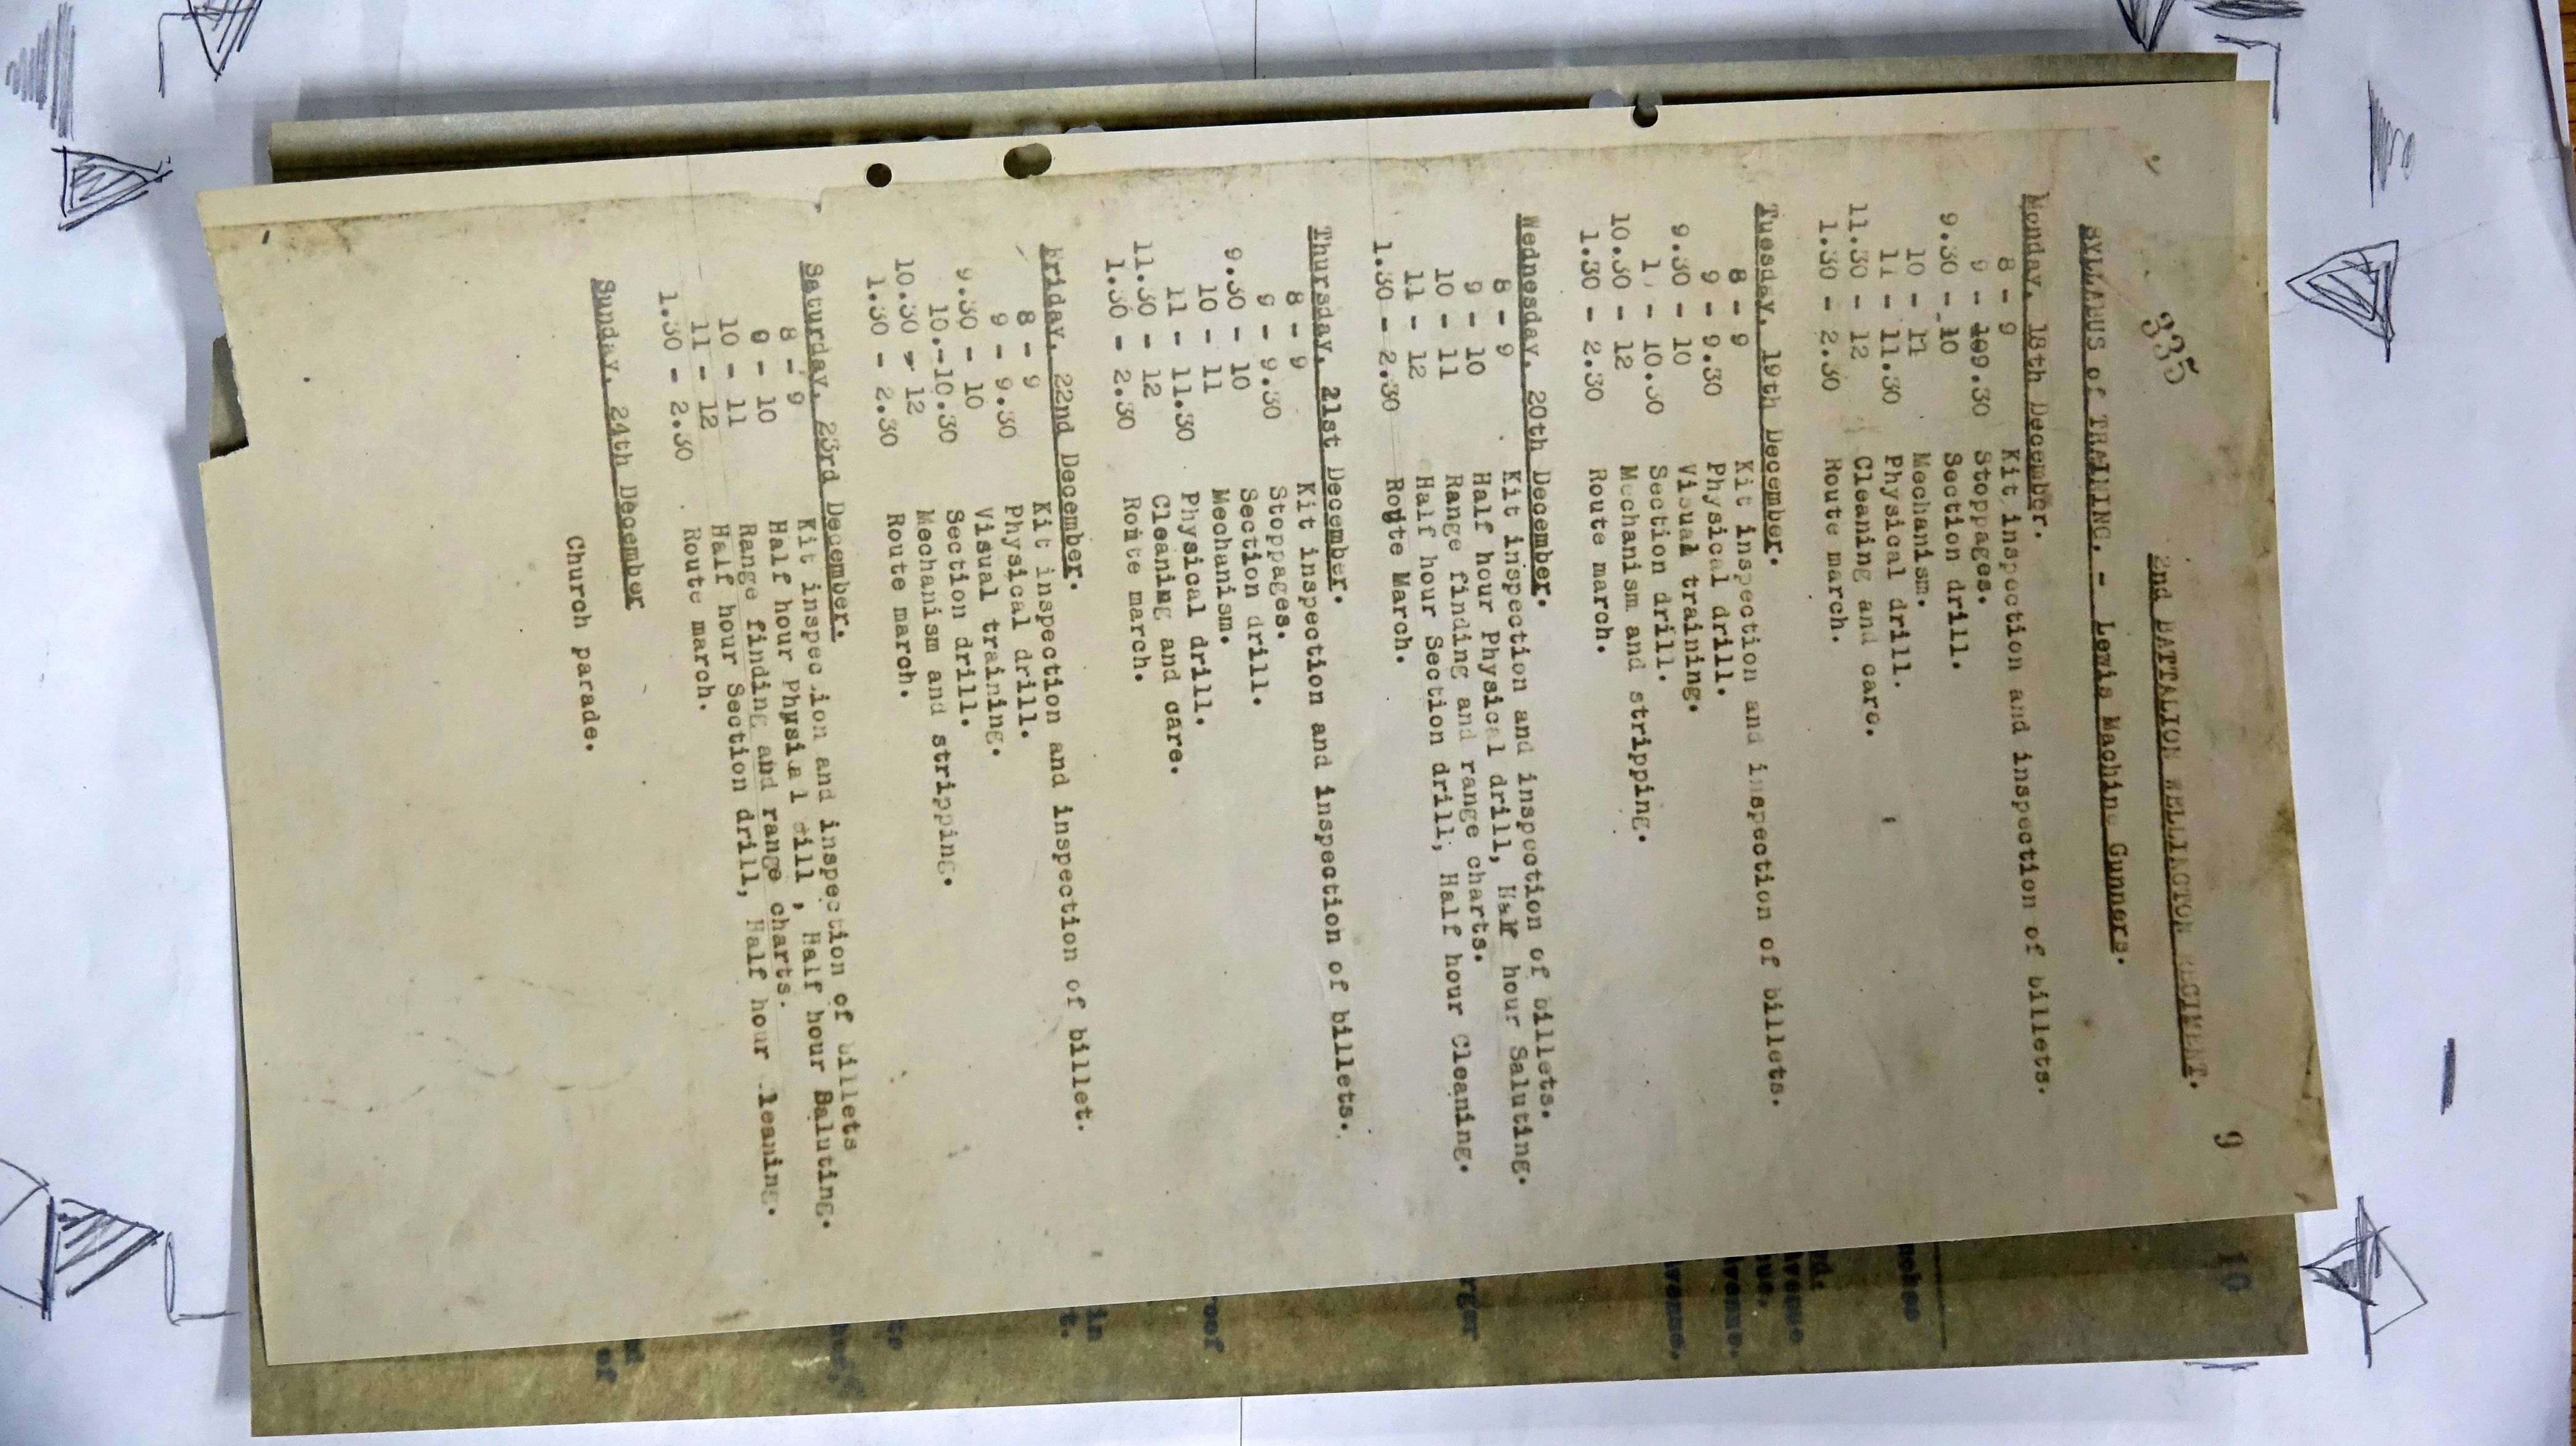 9
335
2nd BATTALION WELLINGTON REGIMENT.
SYLLABUS of TRAINING. - Lewis Machine Gunners.
Monday, 18th December.
8 - 9 Kit inspection and inspection of billets.
9 - 109.30 Stoppages.
9.30 - 10 Section drill.
10 - 11 Mechanism.
11 - 11.30 Physical drill.
11.30 - 12 Cleaning and care.
1.30 - 2.30 Route march.
Tuesday, 19th December.
8 - 9 Kit inspection and inspection of billets.
9 - 9.30 Physical drill.
9.30 - 10 Visual training.
1 - 10.30 Section drill.
10.30 - 12 Mechanism and stripping.
1.30 - 2.30 Route march.
Wednesday, 20th December.
8 - 9 Kit inspection and inspection of billets.
9 - 10 Half hour Physical drill, Half hour Saluting.
10 - 11 Range finding and range charts.
11 - 12 Half hour Section drill, Half hour Cleaning.
1.30 - 2.30 Route March.
Thursday, 21st December.
8 - 9 Kit inspection and inspection of billets.
9 - 9.30 Stoppages.
9.30 - 10 Section drill.
10 - 11 Mechanism.
11 - 11.30 Physical drill.
11.30 - 12 Cleaning and care.
1.30 - 2.30 Route march.
Friday, 22nd December.
8 - 9 Kit inspection and inspection of billet.
9 - 9.30 Physical drill.
9.30 - 10 Visual training.
10.-10.30 Section drill.
10.30 - 12 Mechanism and stripping.
1.30 - 2.30 Route march.
Saturday, 23rd December.
8 - 9 Kit inspec ion and inspection of billets
9 - 10 Half hour Physial drill, Half hour Saluting.
10 - 11 Range finding and range charts.
11 - 12 Half hour Section drill, Half hour leaning.
1.30 - 2.30 Route march.
Sunday, 24th December
Church parade.
10
venue
nue.
venue.
venue.
rger
roof
in
t.
of